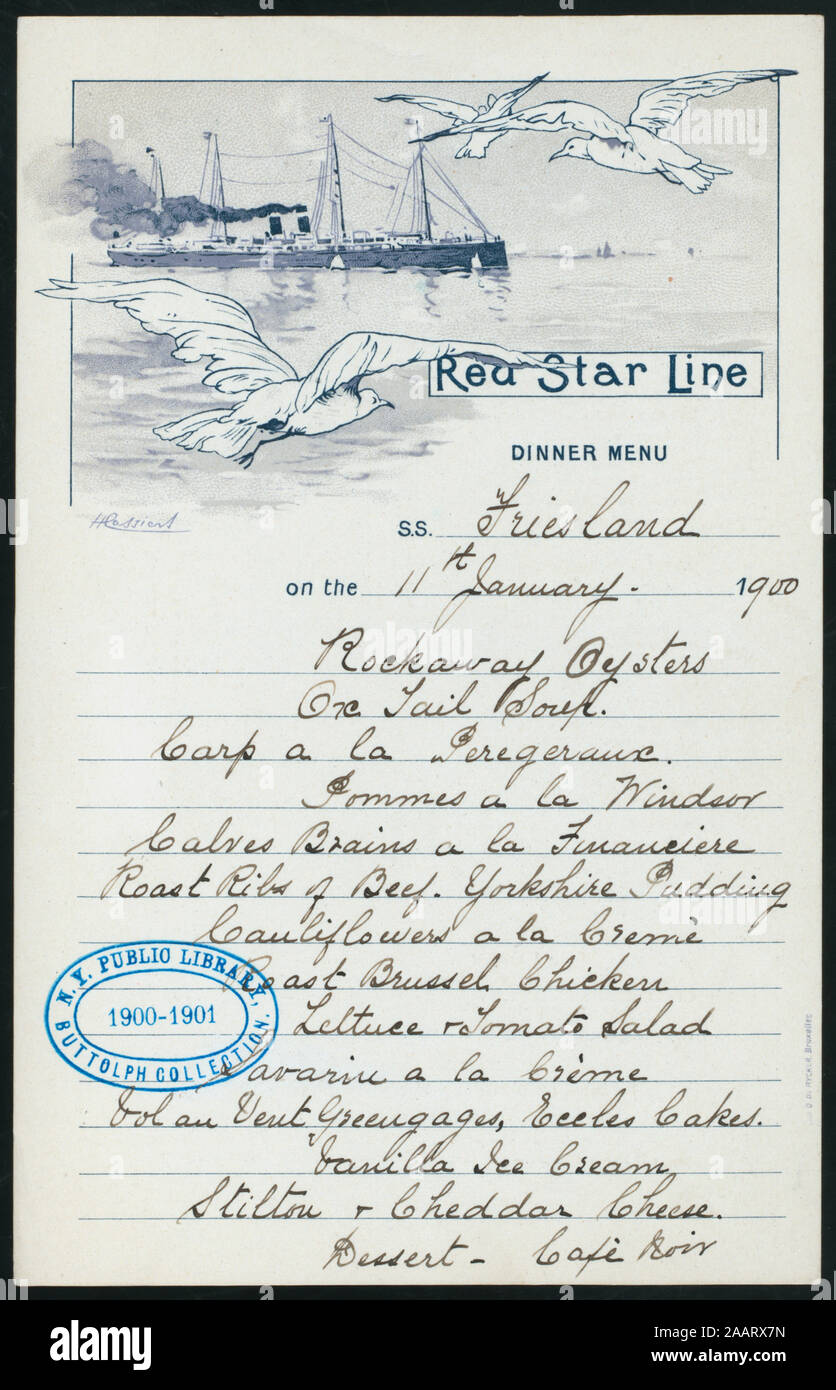 Red Star Line
DINNER MENU
H Cassiers
S.S. Friesland
on the 11th January. 1900
Rockaway Oysters
Ox Tail Soup.
Carp a la Peregeraux.
Pommes a la Windsor
Calves Brains a la Financiere
Roast Ribs of Beef. Yorkshire Pudding
Cauliflowers a la Cremè
Roast Brussel Chicken
Lettuce & Tomato Salad
Savarin a la Crème
Vol au Vent Greengages, Eccles Cakes.
Vanilla Ice Cream
Stilton & Cheddar Cheese.
Dessert - Cafè Noir
N.Y. PUBLIC LIBRARY,
1900-1901
BUTTOLPH COLLECTION.
O. DE RYCKER, Bruxelles
alamy
alamy
Image ID: 2AARX7N
www.alamy.com